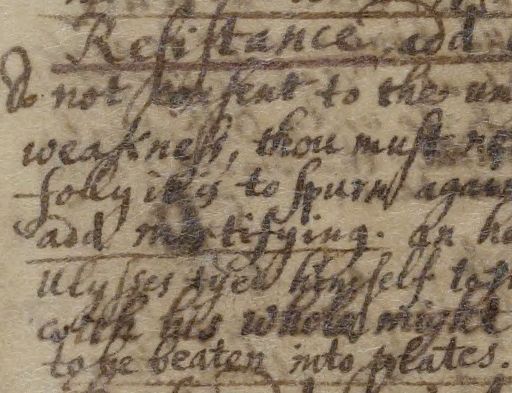 Resistance add
Do not consent to the un
weakness, thou must re
folly it is to spurn again
add mortifying. an he
Ulysses tyed himself to
with his whole might
to be beaten into plates.